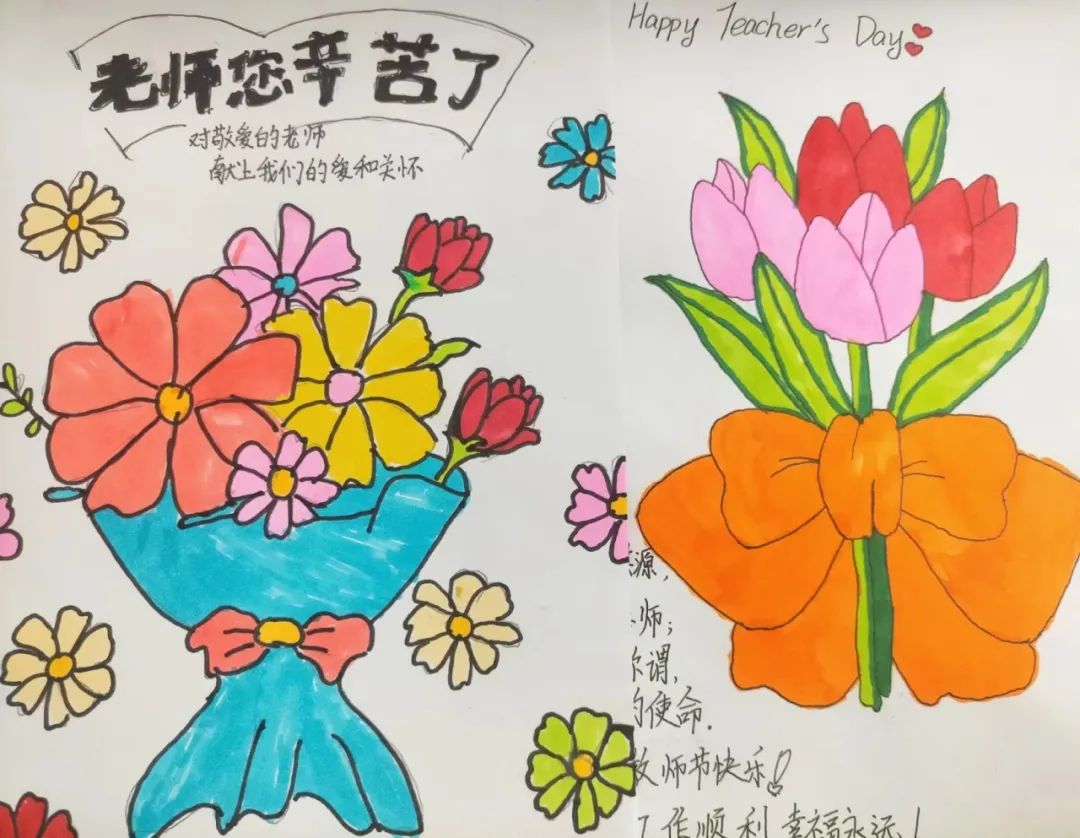 老师您辛苦了
对敬爱的老师
献上我们的爱和关怀
Happy Teacher's Day
源,
师;
谓,
的使命.
教师节快乐!
工作顺利 幸福永远!